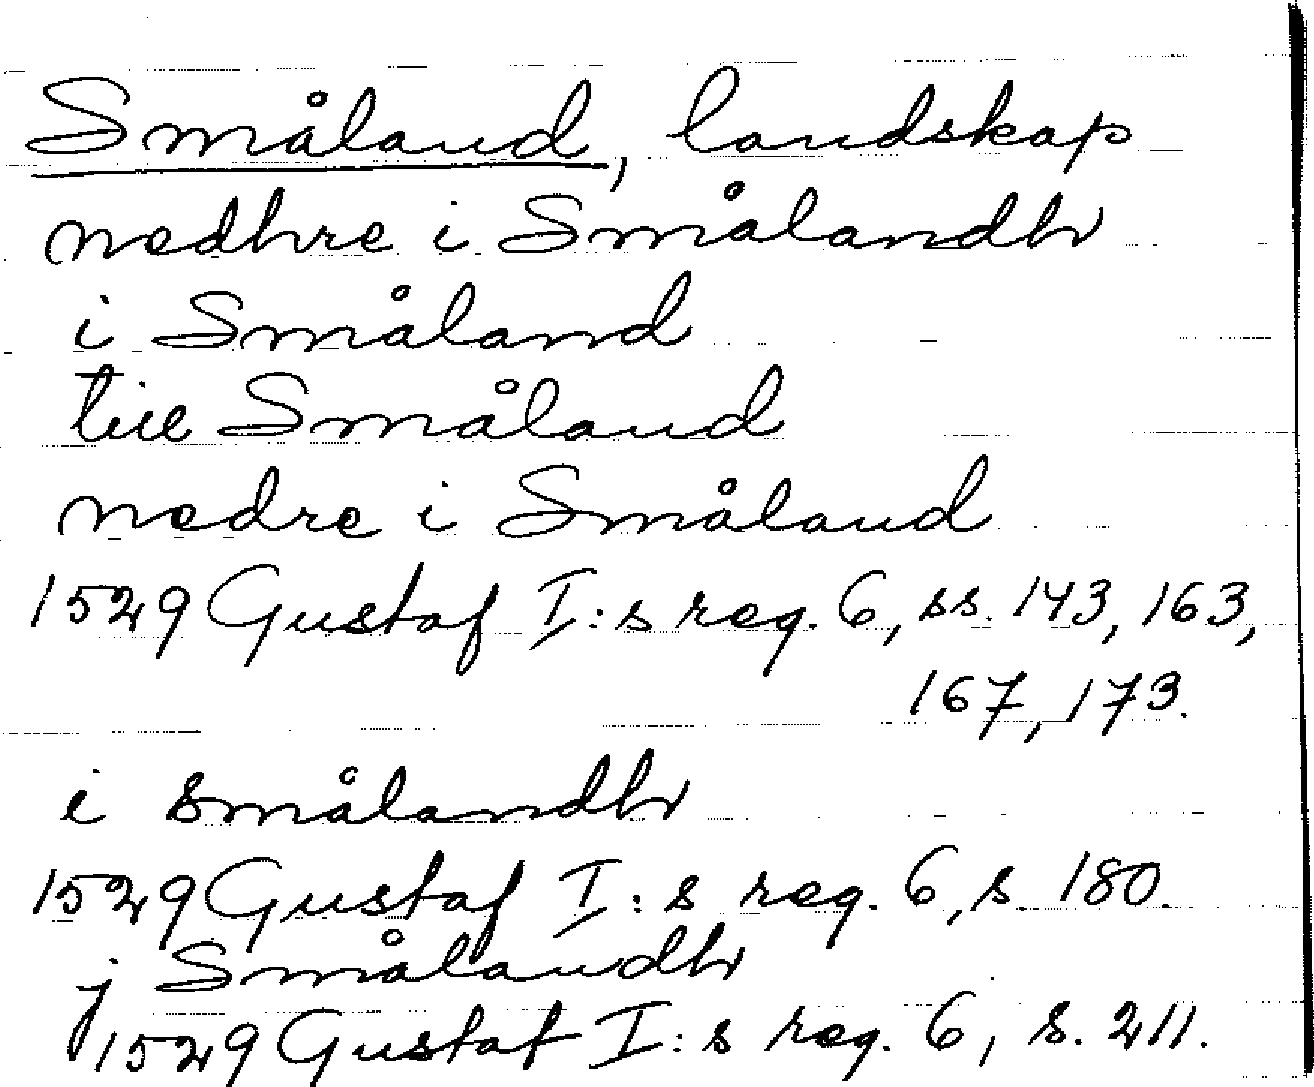 Småland, landskap
nedhre i Smålandh
i Småland
till Småland
nedre i Småland
1529 Gustaf I:s reg. 6, ss. 143, 163,
167, 173.
i smålandh
1529 Gustaf I:s reg. 6, s. 180.
j Smålandh
1529 Gustaf I:s reg. 6, s. 211.